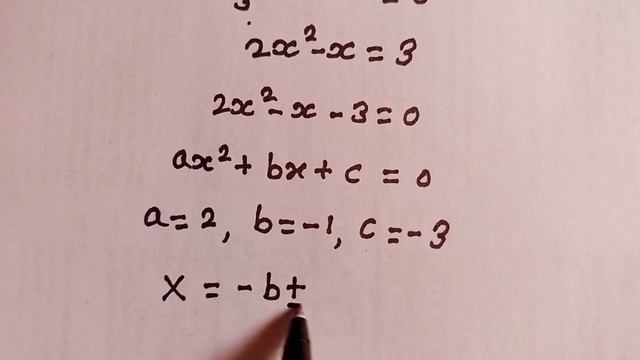 2x² - x = 3
2x² - x - 3 = 0
ax² + bx + c = 0
a = 2, b = -1, c = -3
X = -b ±